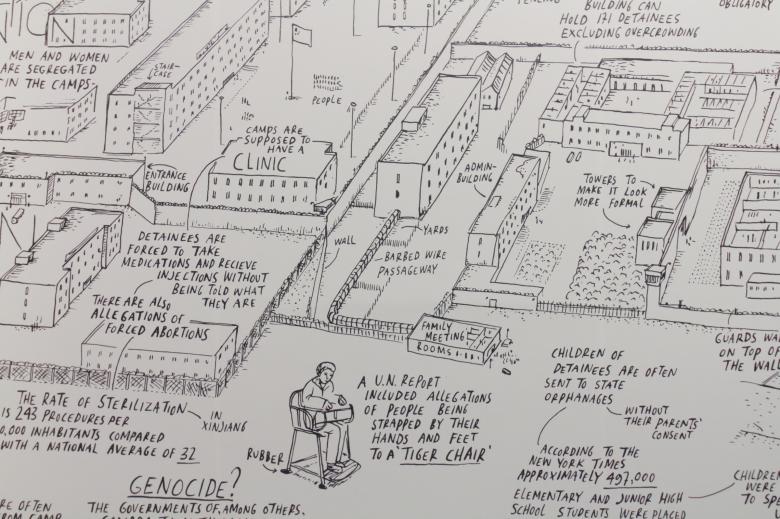 BUILDING CAN
HOLD 171 DETAINEES
EXCLUDING OVERCROWDING
OBLIGATORY
MEN AND WOMEN
ARE SEGREGATED
IN THE CAMPS
STAIR-
CASE
PEOPLE
CAMPS ARE
SUPPOSED TO
HAVE A
CLINIC
ENTRANCE
BUILDING
ADMIN-
BUILDING
TOWERS TO
MAKE IT LOOK
MORE FORMAL
YARDS
WALL
BARBED WIRE
PASSAGEWAY
DETAINEES ARE
FORCED TO TAKE
MEDICATIONS AND RECIEVE
INJECTIONS WITHOUT
BEING TOLD WHAT
THEY ARE
THERE ARE ALSO
ALLEGATIONS OF
FORCED ABORTIONS
FAMILY
MEETING
ROOMS
GUARDS
ON TOP OF
THE WALL
THE RATE OF STERILIZATION
IN
XINJIANG
IS 243 PROCEDURES PER
0,000 INHABITANTS COMPARED
WITH A NATIONAL AVERAGE OF 32
RUBBER
A U.N. REPORT
INCLUDED ALLEGATIONS
OF PEOPLE BEING
STRAPPED BY THEIR
HANDS AND FEET
TO A 'TIGER CHAIR'
CHILDREN OF
DETAINEES ARE OFTEN
SENT TO STATE
ORPHANAGES
WITHOUT
THEIR PARENTS'
CONSENT
ACCORDING TO THE
NEW YORK TIMES
APPROXIMATELY 497,000
ELEMENTARY AND JUNIOR HIGH
SCHOOL STUDENTS WERE PLACED
CHILDREN
WERE
TO
GENOCIDE?
THE GOVERNMENTS OF, AMONG OTHERS,
OFTEN